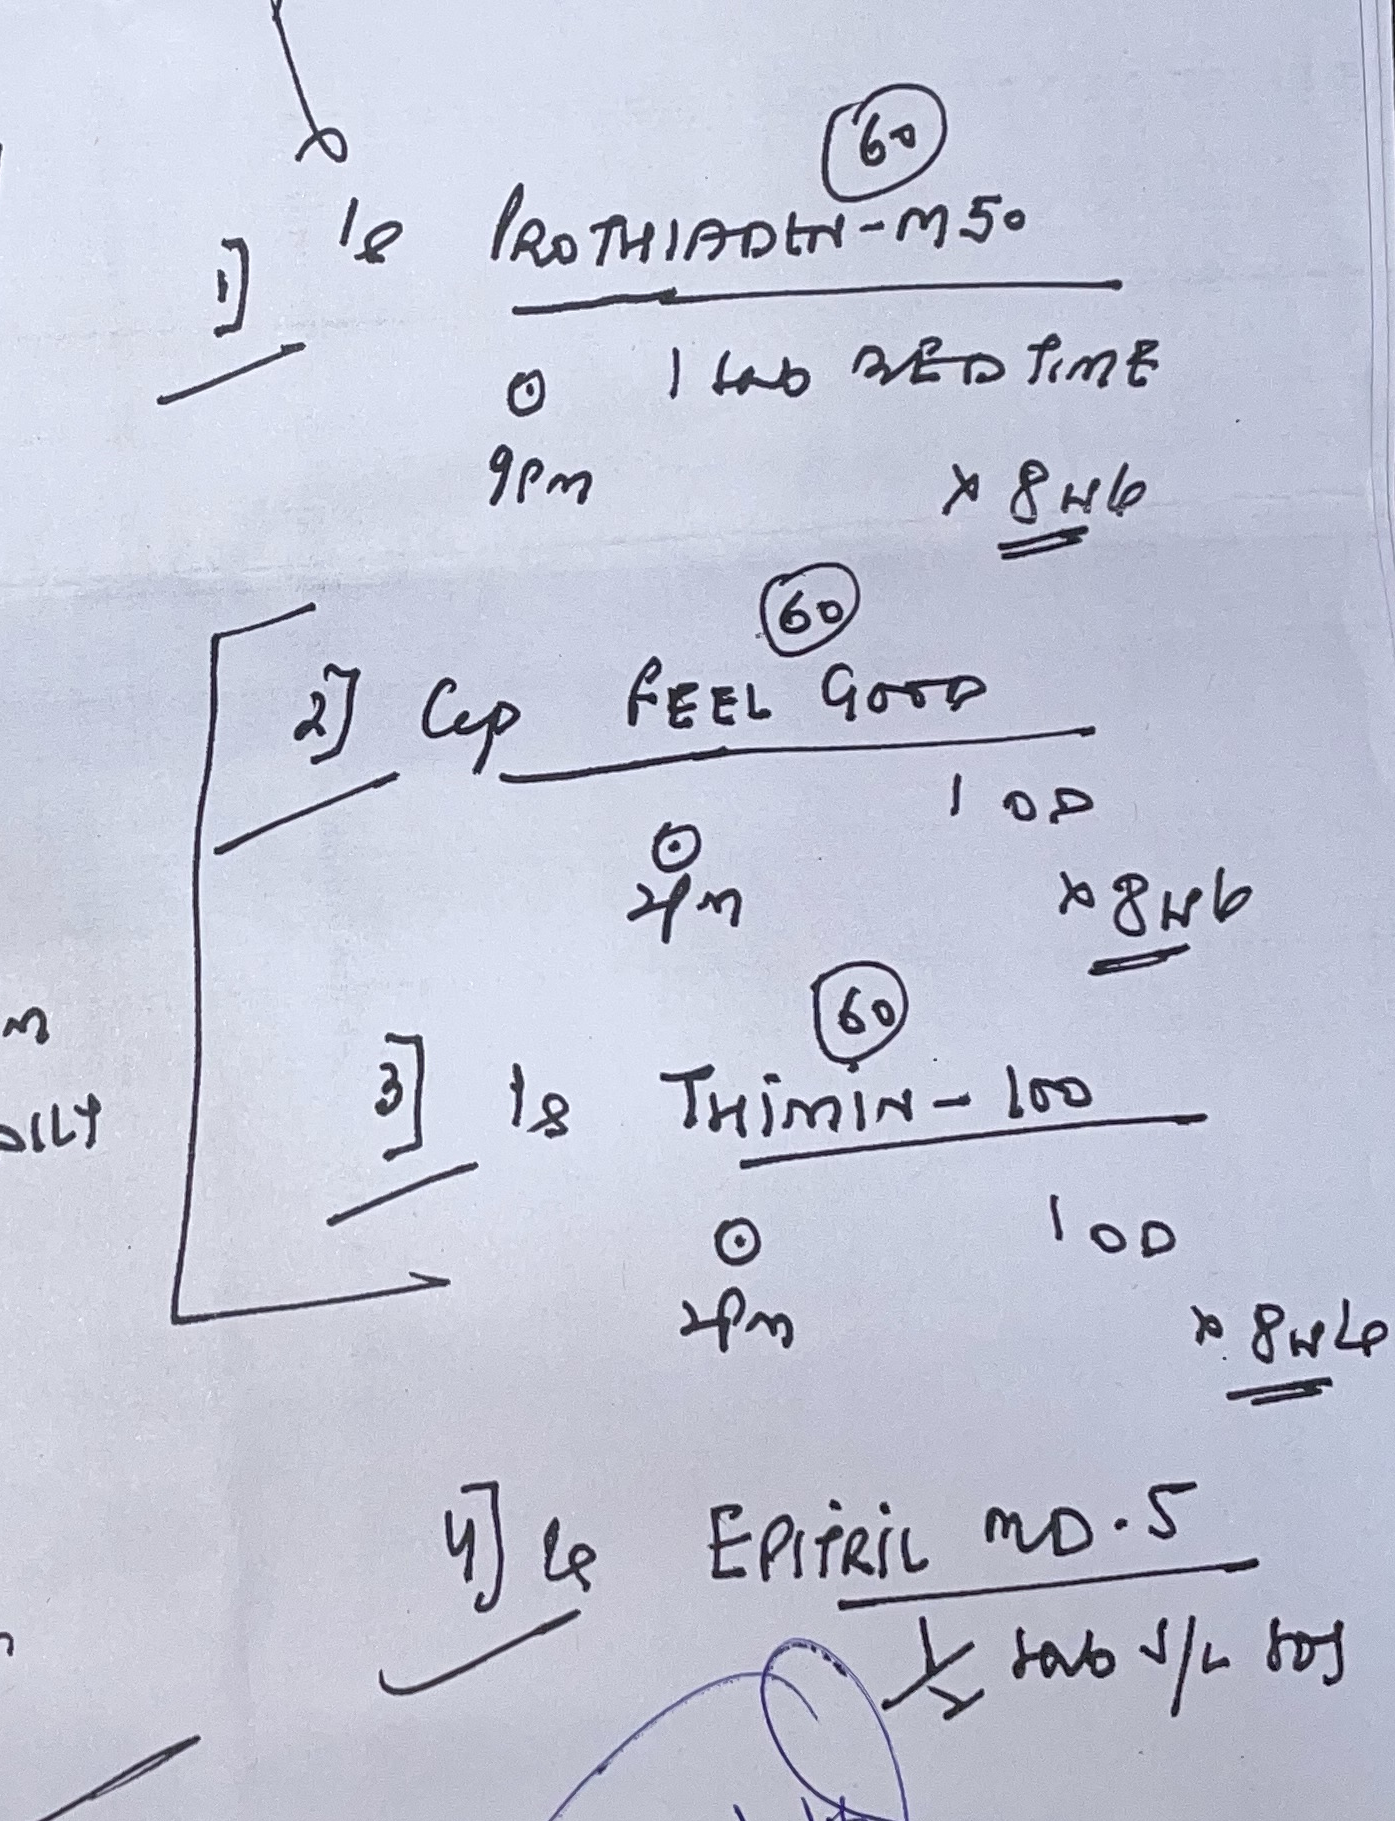 60
1] Tab PROTHIADEN-M50
1 tab BED TIME
9pm
x 8 wk
60
2] Cap FEEL GOOD
1 OD
2pm
x 8 wk
60
3] Tab THIMIN-100
1 OD
2pm
x 8 wk
4] Tab EPITRIL MD.5
1/2 tab S/L SOS